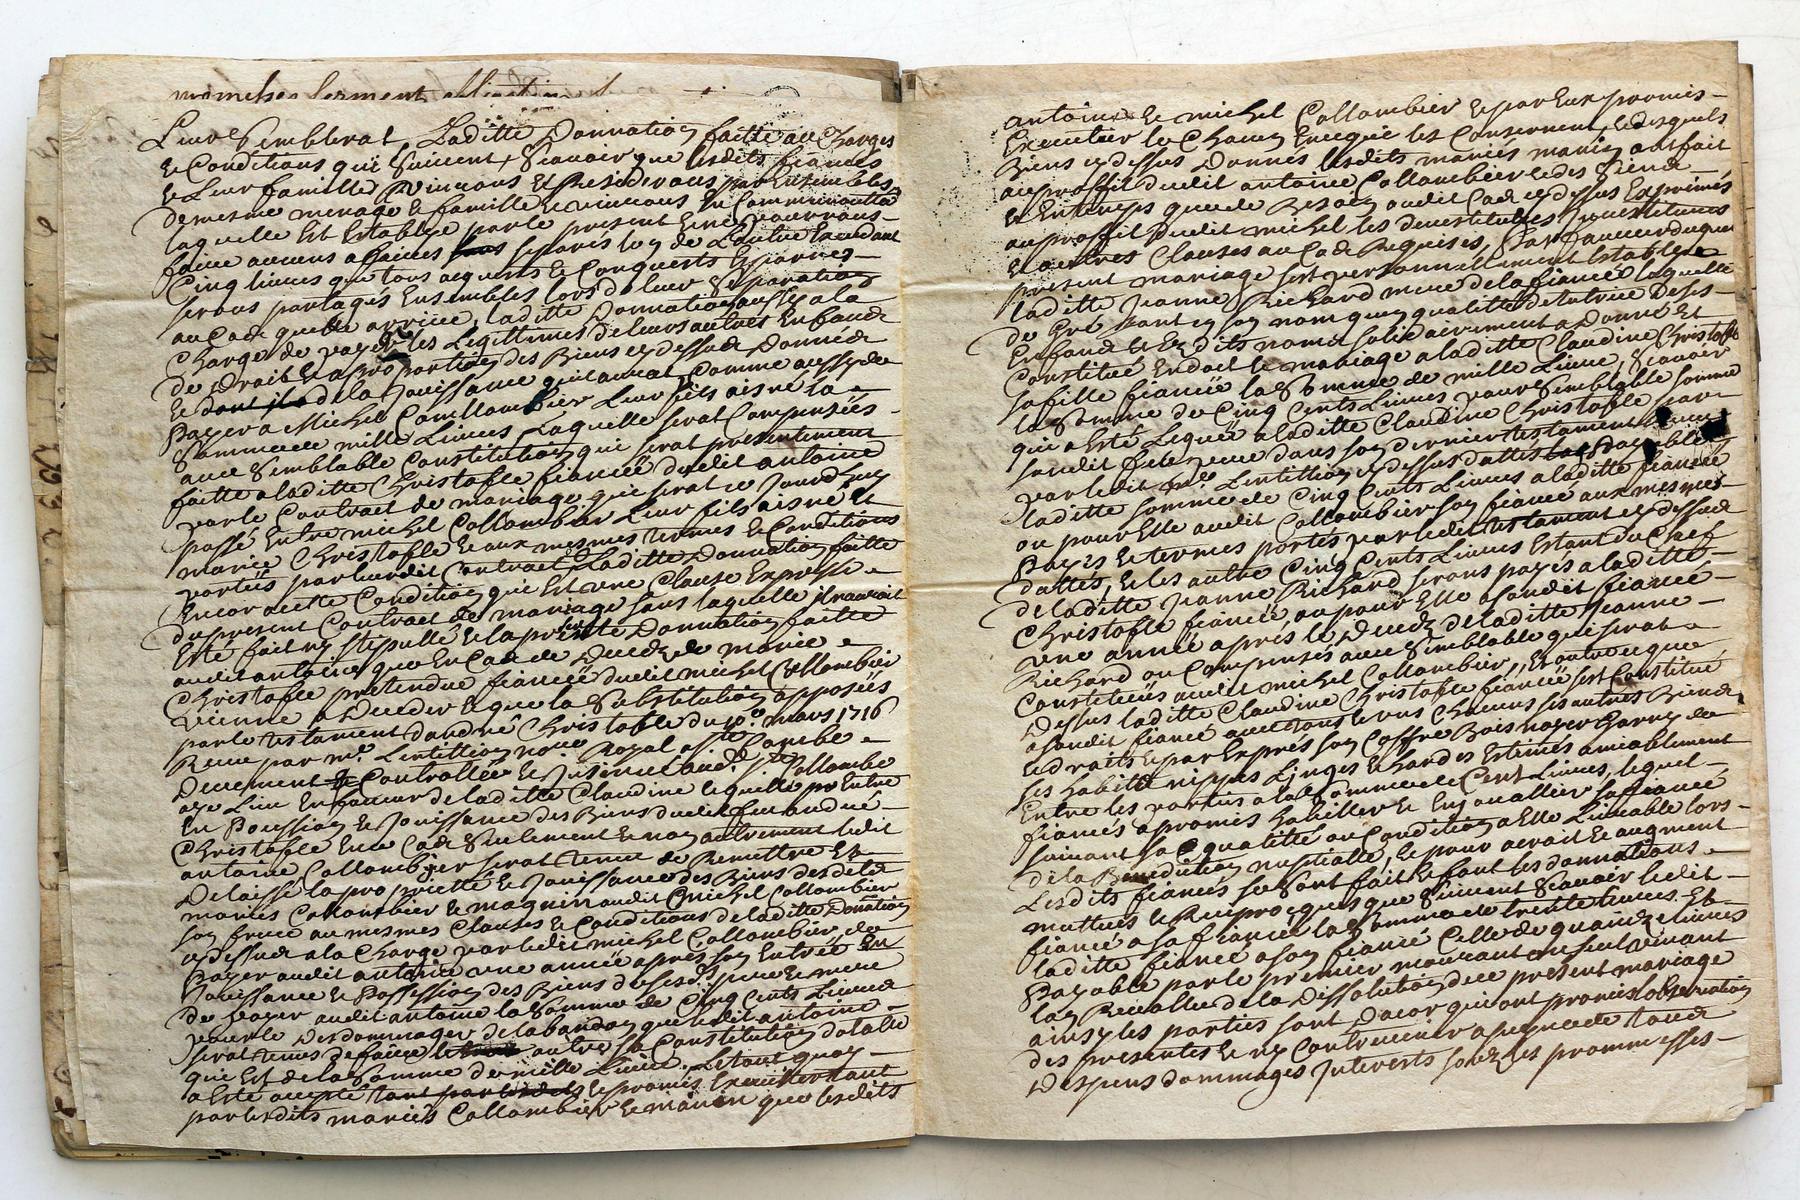 Leur Semblerat, Laditte Donnation faitte au Charges
et Conditions qui Suivent, Scavoir que lesdits fiancés
et Leur famille Vivrons Et Residerons par Ensembles
de mesme menage et famille et vivrons En Communauté
laquelle Est Establye par le present Et ne pourrons
faire aucuns affaires separés Lon de Lautre Excedant
Cinq livres que tous acquerts et Conquerts Espargnes
serons partagés Ensembles lors de leur Separation
au Cas quelle arrive, laditte Donnation aussy a la
Charge de payer les Legittimes de leurs autres Enfands
de Droit Et a proportion des Biens cy dessus Donnés
et de la Jouissance quil aurat Comme aussy de
Payer a Michel Comllombier Leur fils aisné La
Somme de mille Livres Laquelle serat Compensées
avec Semblable Constitution qui serat presentement
faitte a laditte Christofle fiancée dudit antoine
par le Contrat de mariage qui serat ce Jourdhuy
passé Entre michel Collombier Leur fils aisné Et
marie Christofle et aux mesmes termes et Conditions
portés par leurdit Contract, Laditte Donnation faitte
Encor a cette Condition qui Est une Clause Expresse
du present Contract de mariage sans laquelle il nauroit
Esté fait ny stippullé et la pnte Donnation faitte
audit antoine que En Cas de Decedz de marie
Christofle pretendue fiancée dudit michel Collombier
vienne a Deceder et que la Substitution apposées
par le testament dandré Christofle du mars 1716
Recue par me. Lintillion nore. Royal a Combe
Deuement Controllée et Insinué audt. Collombe
aye Lieu En faveur de laditte Claudine et quelle Entre
En Possession et Jouissance des Biens dudit feu andré
Christofle En ce Cas Seulement et non autrement ledit
antoine Collombier serat tenu de Remettre Et
Delaisser la proprietté et Jouissance des Biens desdits
mariés Collombier et maquin audit michel Collombier
son frere au mesmes Clauses et Conditions de laditte Donnation
cy dessus a la Charge par ledit michel Collombier de
Payer audit antoine une année apres son Entrée En
Jouissance et Possession des Biens de sesds. pere et mere
de payer audit antoine la Somme de Cinq Cents Livres
pour les Desdommager de labandon que ledit antoine
serat tenus de faire outre sa Constitution dotalle
qui Est de la Somme de mille Livres. Le tout quoy
a Esté accepté et promis Executter tant
par lesdits mariés Collombier et manin que lesdits
antoine et michel Collombier et par Eux promis
Executter le Chacun En ce qui les Consernent, et desquels
Biens cy dessus Donnés lesdits mariés manin ont fait
au proffit dudit antoine Collombier et des Siens
au proffit dudit michel les devestitures Jnvestitures
et autres Clauses au Cas Requises, Par faveur duquel
present mariage sest personnellement Establye
laditte Jeanne Richard mere de la fiancée laquelle
de Gré tant en son nom quen qualitté de tutrice de ses
Enfands Et Esdits noms solidairement a Donné Et
Constitué En dot et mariage a laditte Claudine Christofle
sa fille fiancée la Somme de mille Livres, Scavoir
la Somme de Cinq Cents Livres pour Semblable somme
qui a Esté Leguée a laditte Claudine Christofle par
sondit feu pere dans son dernier testament
par ledit me. Lintillion cy dessus datté payable
laditte somme de Cinq Cents Livres a laditte fiancée
ou pour Elle audit Collombier son fiancé aux mesmes
Payes et termes portés par ledit testament cy dessus
dattés, et les autre Cinq Cents Livres Estant du Chef
de laditte Jeanne Richard serons payés a laditte
Christofle fiancée, ou pour Elle a sondit fiancé
une année apres le Decedz de laditte Jeanne
Richard ou Compensés avec Semblable qui serat
Constitués audit michel Collombier, Et outre ce que
Dessus laditte Claudine Christofle fiancée sest Constitué
a sondit fiancé avec tous et uns Chacuns ses autres Biens
et droits et par Exprés son Coffre Bois noyer Garny de
ses habits nippes Linges et hardes Estimés amiablement
Entre les parties a la Somme de Cent Livres, lequel
fiancé a promis habiller et Enjouallier sa fiancée
suivant sa qualitté ou Condition a Elle Livrable lors
de la Benediction nuptialle, Et pour acroit et augment
Lesdits fiancés se sont fait et font les donnations
mutues et Reciprocques que Suivent Scavoir ledit
fiancé a sa fiancée la Somme de trente livres Et
laditte fiancée a son fiancé Celle de quinze livres
Payable par le premier mourant au seul vivant
Lan Revollu de la Dissolution de ce present mariage
ainsy les parties sont dacor qui ont promis lobservation
des presentes et ny Contrevenir a peyne de tous
Despens dommages Interests soubz les prommesses